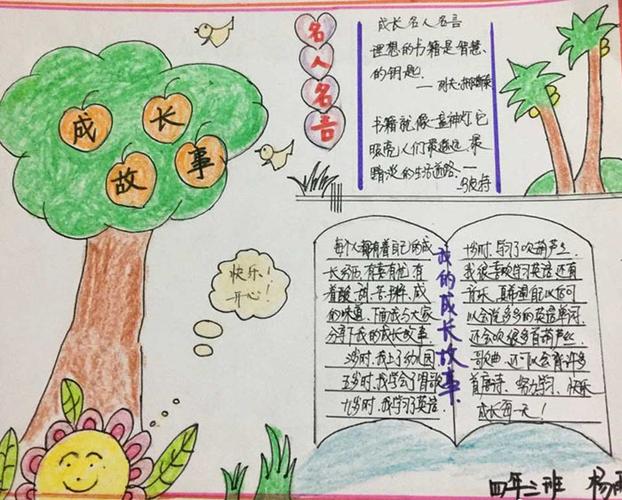 成长故事
名人名言
成长名人名言
理想的书籍是智慧
的钥匙.
书籍就像一盏神灯,它
照亮人们最遥远、最
暗淡的生活道路.
快乐!
开心!
我的成长故事
每个人都有着自己的成
长经历,有喜有忧,有
着酸、甜、苦、辣、咸
的味道.下面我与大家
分享下我的成长故事.
3岁时,我上了幼儿园
五岁时,我学会了唱歌
九岁时,我学习了英语.
十岁时,学习了吹葫芦丝.
我很喜欢学习英语还有
音乐,真希望自己以后可
以会说多多的英语单词,
还会吹很多首葫芦丝
歌曲,还可以会背许多
首唐诗,努力学习,快乐
成长每一天!
四年二班 杨